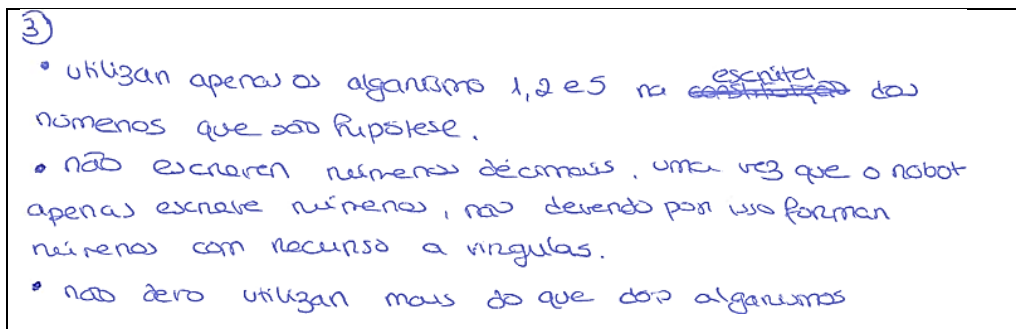 3
• utilizar apenas os algarismo 1,2 e 5 na escrita dos
números que são hipótese.
• não escrever números décimais, uma vez que o robot
apenas escreve números, não devendo por isso formar
números com recurso a vírgulas.
• não devo utilizar mais do que dois algarismos